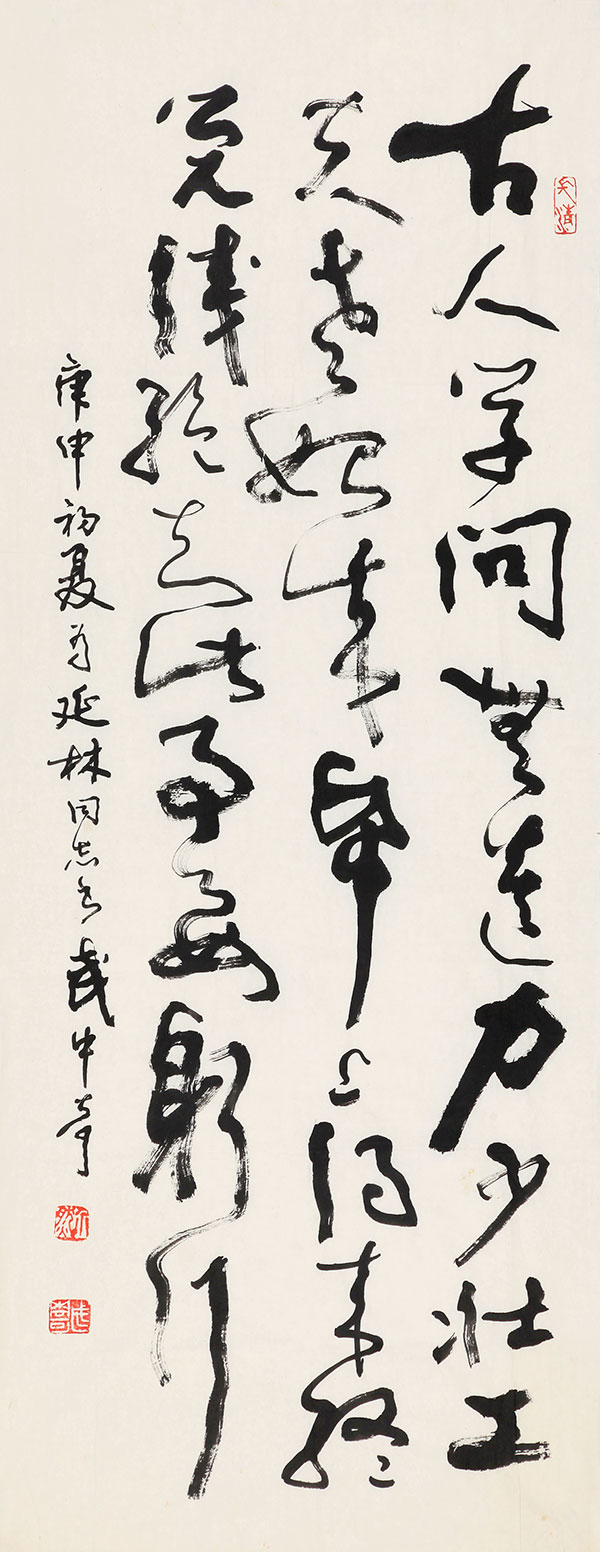 古人学问無遗力少壮工
夫老始成帋上得来终
觉浅绝知此事要躬行
庚申初夏为延林同志书武中奇